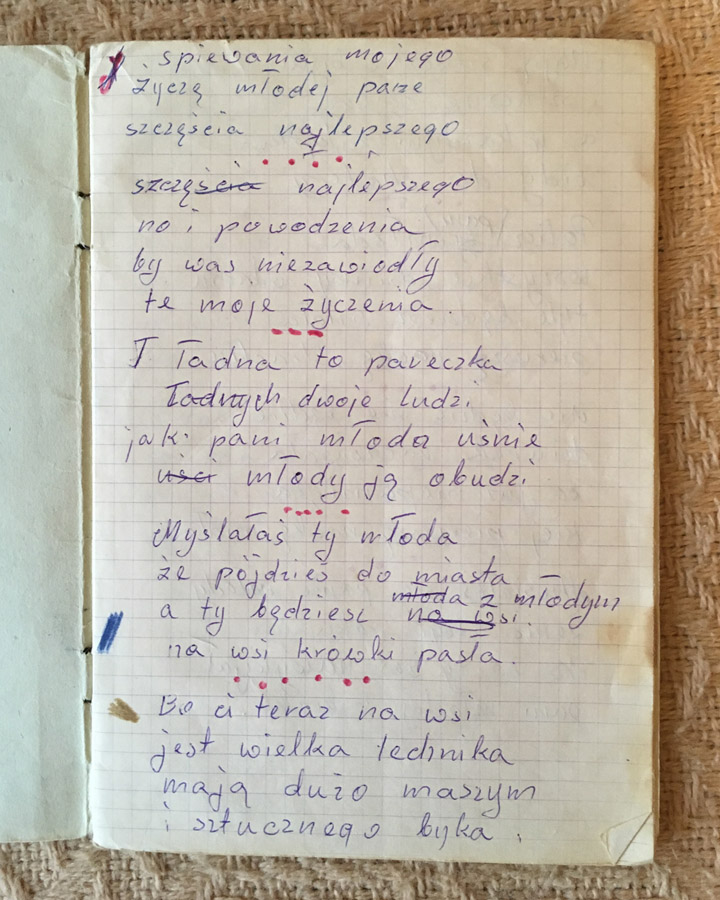 śpiewania mojego
życzę młodej parze
szczęścia najlepszego
szczęścia najlepszego
no i powodzenia
by was niezawiodły
te moje życzenia.
I ładna to pareczka
Ładnych dwoje ludzi
jak pani młoda uśnie
uści młody ją obudzi
Myślałaś ty młoda
że pójdzieś do miasta
a ty będziesz młoda z młodym
na wsi.
na wsi krówki pasła.
Bo ci teraz na wsi
jest wielka technika
mają dużo maszym
i sztucznego byka.